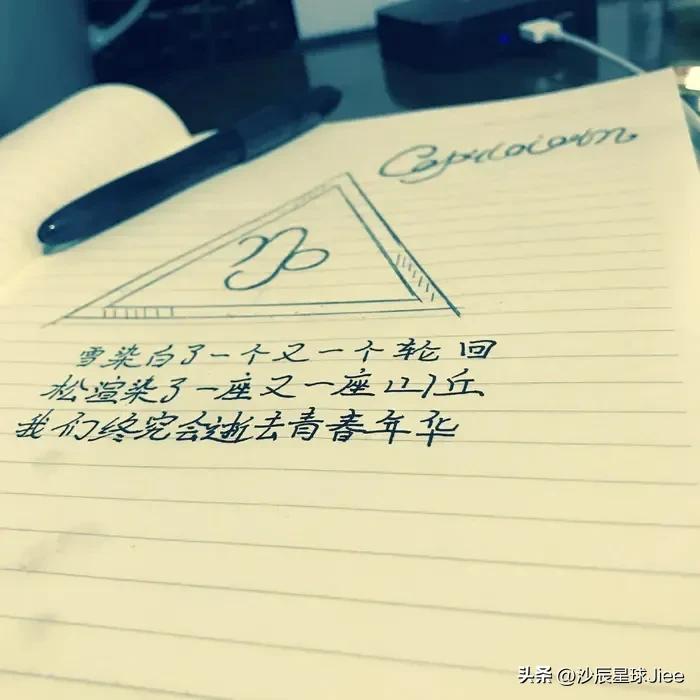 Capricorn
雪染白了一个又一个轮回
松渲染了一座又一座山丘
我们终究会逝去青春年华
头条 @沙辰星球Jiee